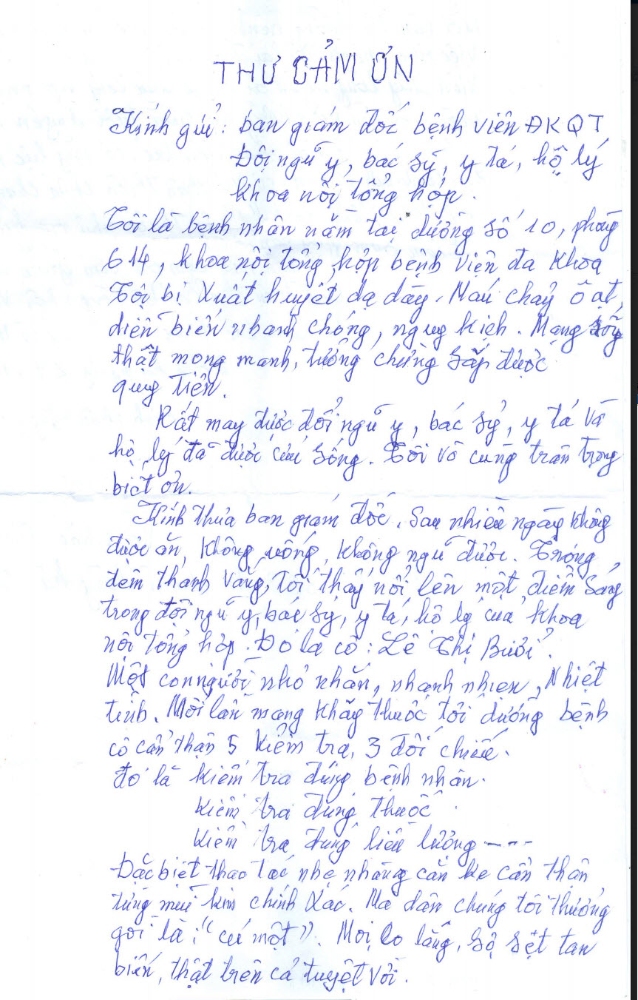 THƯ CẢM ƠN
Kính gửi: ban giám đốc bệnh viện ĐKQT
Đội ngũ y, bác sỹ, y tá, hộ lý
khoa nội tổng hợp.
Tôi là bệnh nhân nằm tại đường số 10, phòng
614, khoa nội tổng hợp bệnh viện đa khoa
Tôi bị xuất huyết dạ dày. Máu chảy ồ ạt,
diễn biến nhanh chóng, nguy kịch. Mạng sống
thật mong manh, tưởng chừng sắp được
quy tiên.
Rất may được đội ngũ y, bác sỹ, y tá và
hộ lý đã được cứu sống. Tôi vô cùng trân trọng
biết ơn.
Kính thưa ban giám đốc. Sau nhiều ngày không
được ăn, không uống, không ngủ được. Trong
đêm thanh vắng, tôi thấy nổi lên một điểm sáng
trong đội ngũ y, bác sỹ, y tá, hộ lý của khoa
nội tổng hợp. Đó là cô: Lê Thị Bưởi.
Một con người nhỏ nhắn, nhanh nhẹn, Nhiệt
tình. Mỗi lần mang khay thuốc tới dường bệnh
cô cẩn thận 5 kiểm tra, 3 đối chiếu.
đó là kiểm tra đúng bệnh nhân.
kiểm tra đúng thuốc.
kiểm tra đúng liều lượng ---
Đặc biệt thao tác nhẹ nhàng cặn kẽ cẩn thận
từng mũi kim chính xác. Mà dân chúng tôi thường
gọi là: "cú một". Mọi lo lắng, sợ sệt tan
biến, thật trên cả tuyệt vời.